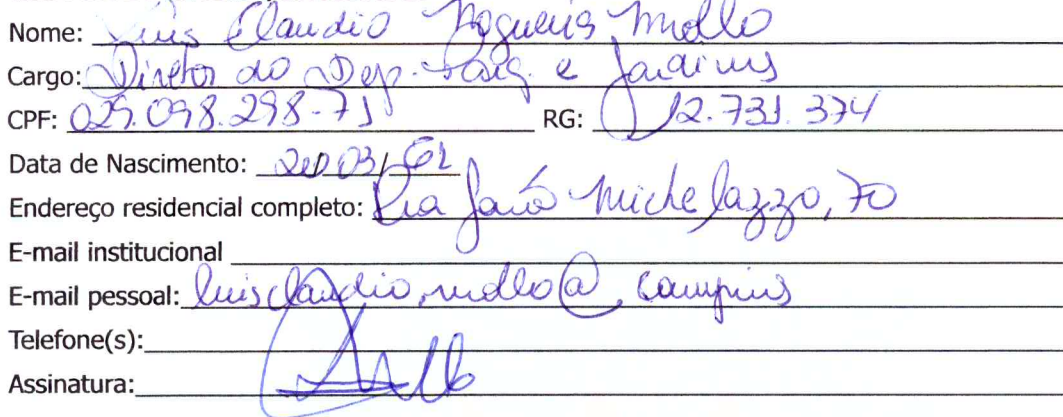 Nome: Luis Claudio Nogueira Mollo
Cargo: Diretor do Dep. Parq. e Jardins
CPF: 029.098.298-71 RG: 12.731.374
Data de Nascimento: 20/03/62
Endereço residencial completo: Rua João Michelazzo, 70
E-mail institucional
E-mail pessoal: luisclaudio.mollo@.campinas
Telefone(s):
Assinatura: